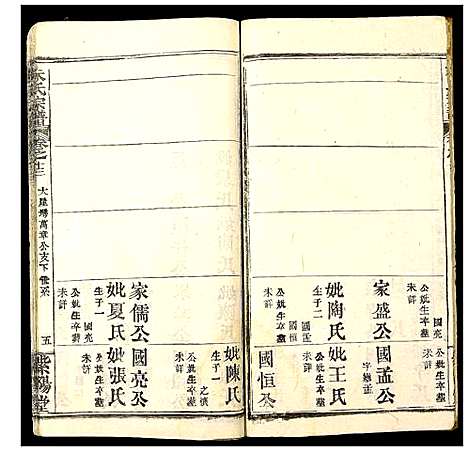 家盛公
公妣生卒葬
未詳
妣陶氏
生子二
國孟
國恒
公妣生卒葬
未詳
國孟公
字
公妣生卒葬
未詳
妣王氏
國恒公
妣陳氏
生子一
之
家儒公
妣夏氏
生子一
國亮
公妣生卒葬
未詳
國亮公
妣張氏
公妣生卒葬
未詳
朱氏宗譜
卷之十三
大 灣萬章公支下世系
五
紫陽堂